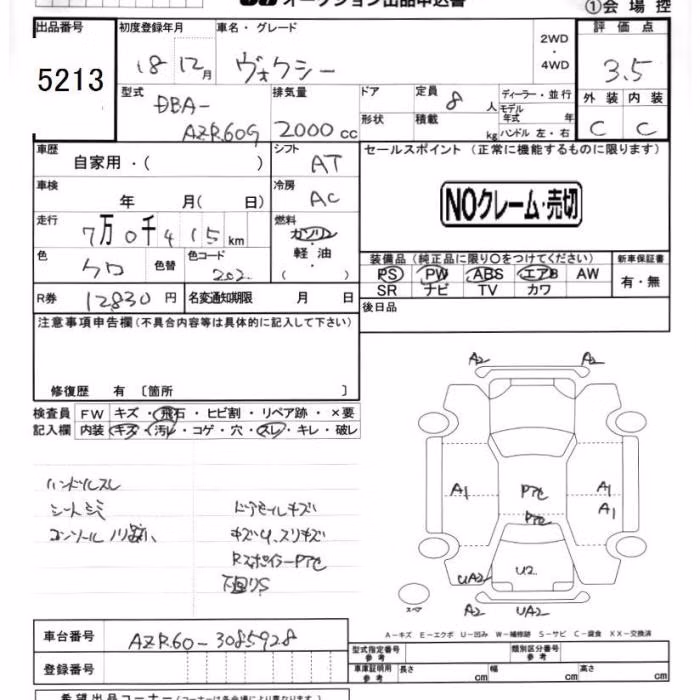 オークション出品申込書
①会場控
出品番号
5213
初度登録年月
18 12月
車名・グレード
ヴォクシー
2WD
・
4WD
評価点
3.5
外装 内装
C C
型式
DBA-
AZR60G
排気量
2000cc
ドア
形状
定員 8人
積載 kg
ディーラー・並行
モデル
年式 年
ハンドル 左・右
車歴
自家用・( )
シフト
AT
車検
年 月(日)
冷房
AC
走行
7万0千415km
燃料
ガソリン
・
軽油
( )
色
クロ
色替
色コード
202
R券 12830円
名変通知期限 月 日
セールスポイント(正常に機能するものに限ります)
NOクレーム・売切
装備品(純正品に限り○をつけてください)
PS PW ABS エアB AW
SR ナビ TV カワ
新車保証書
有・無
後日品
注意事項申告欄(不具合内容等は具体的に記入して下さい)
修復歴 有〔箇所 〕
検査員
記入欄
FW キズ・飛石・ヒビ割・リペア跡・×要
内装 キズ・汚レ・コゲ・穴・スレ・キレ・破レ
ハンドルスレ
ドアモールキズ
キズU、スリキズ
RスポイラーPアセ
下回りS
A2 A2
A1 Pアセ A1
Pアセ A1
UA2 U2
A2 UA2
スペア
A-キズ E-エクボ U-凹み W-補修跡 S-サビ C-腐食 XX-交換済
車台番号
AZR60-3085928
登録番号
型式指定番号
参考
類別区分番号
参考
車庫証明用
参考
長さ cm
幅 cm
高さ cm
希望出品コーナー(コーナーは各会場により異なります)